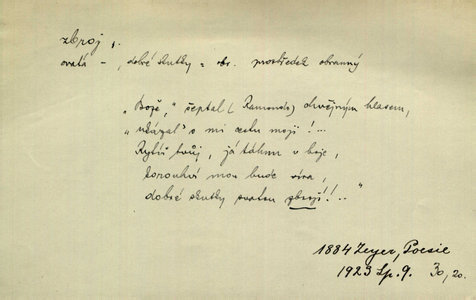 zbroj, f.
svatá – „dobré skutky“ = obr. prostředek obranný
„Bože,“ šeptal (Ramondo) chvějným hlasem,
„ukázals mi cestu moji!...
Rytíř tvůj, já táhnu v boje,
korouhví mou bude víra,
dobré skutky svatou zbrojí!..“
1884 Zeyer, Poesie
1923 Sp. 9. 30, 20.